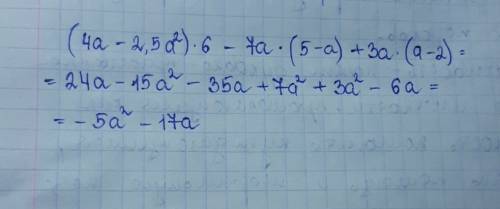 (4a - 2,5a²)·6 - 7a·(5-a) + 3a·(a-2) =
= 24a - 15a² - 35a + 7a² + 3a² - 6a =
= - 5a² - 17a